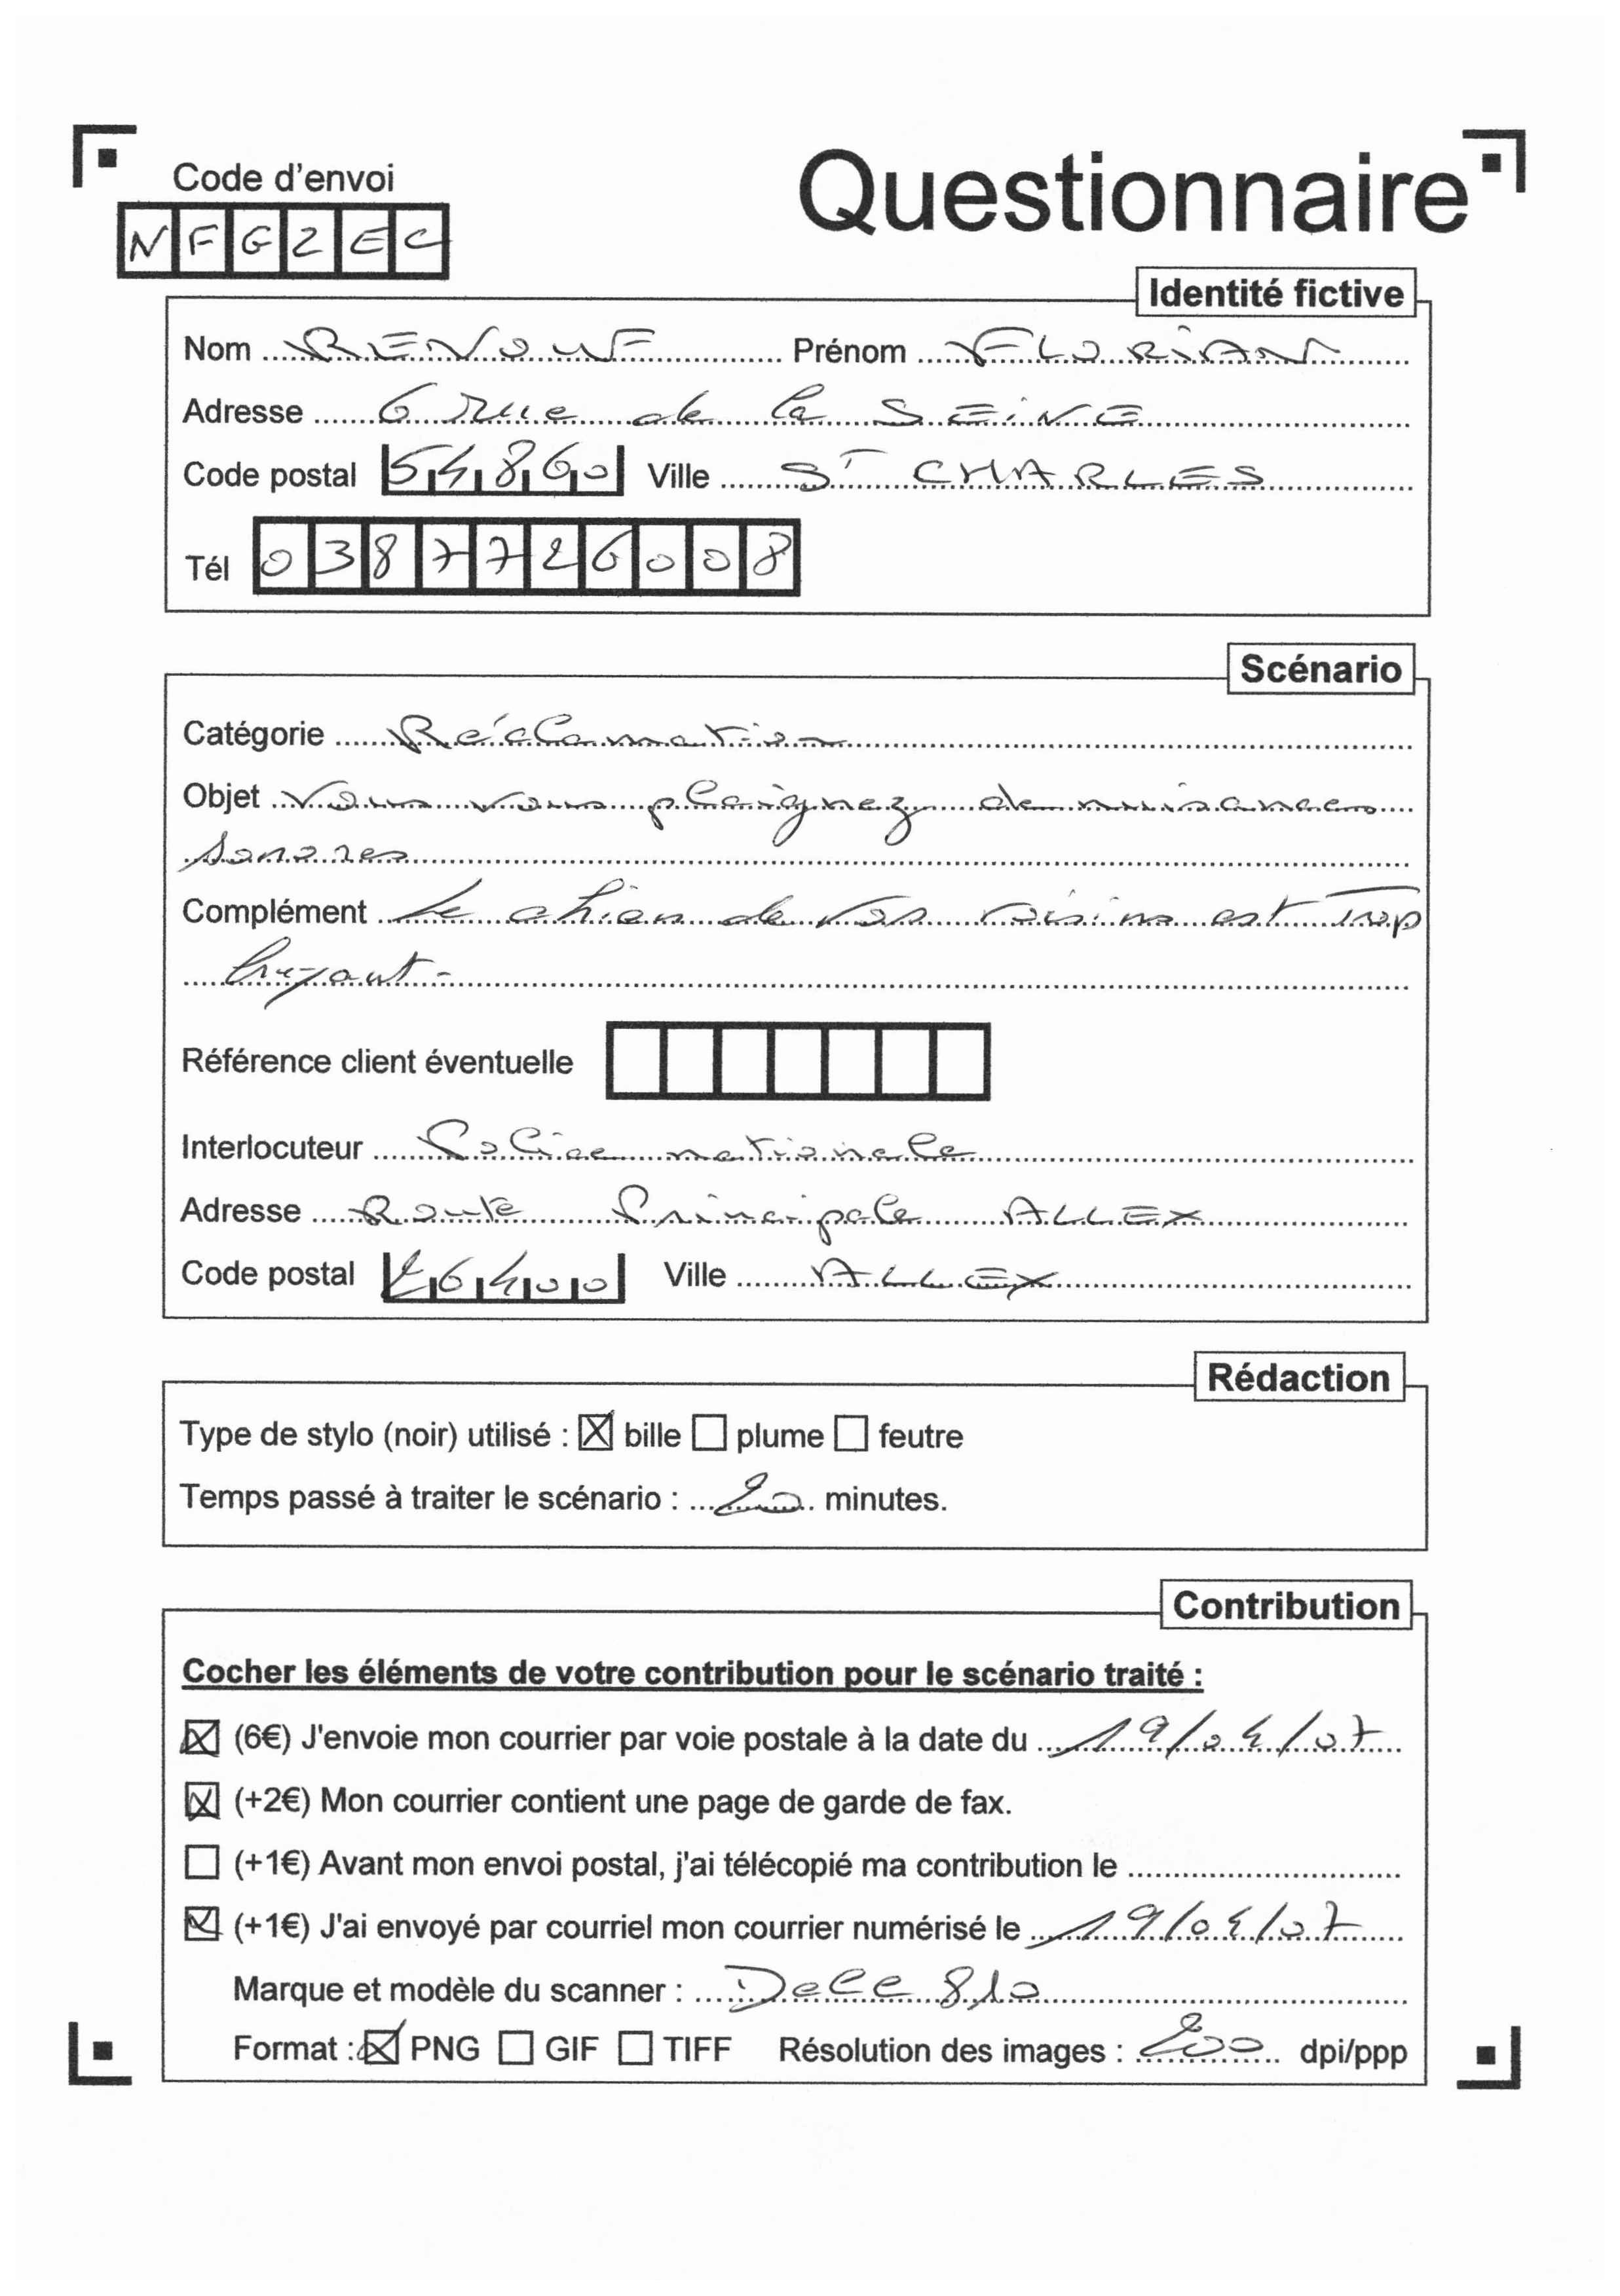 Code d'envoi
Questionnaire
NFGZEC
Identité fictive
Nom RENOUF Prénom FLORiAN
Adresse 6 rue de la SEiNE
Code postal 54860 Ville ST CHARLES
Tél 0387726008
Scénario
Catégorie Réclamation
Objet Vous vous plaignez de nuisances
sonores
Complément Le chien de vos voisins est trop
bruyant-
Référence client éventuelle
Interlocuteur Police nationale
Adresse Route Principale ALLEX
Code postal 26400 Ville ALLEX
Rédaction
Type de stylo (noir) utilisé : ☒ bille ☐ plume ☐ feutre
Temps passé à traiter le scénario : 20 minutes.
Contribution
Cocher les éléments de votre contribution pour le scénario traité :
☒ (6€) J'envoie mon courrier par voie postale à la date du 19/04/07
☒ (+2€) Mon courrier contient une page de garde de fax.
☐ (+1€) Avant mon envoi postal, j'ai télécopié ma contribution le
☒ (+1€) J'ai envoyé par courriel mon courrier numérisé le 19/04/07
Marque et modèle du scanner : Dell 810
Format : ☒ PNG ☐ GIF ☐ TIFF Résolution des images : 200 dpi/ppp